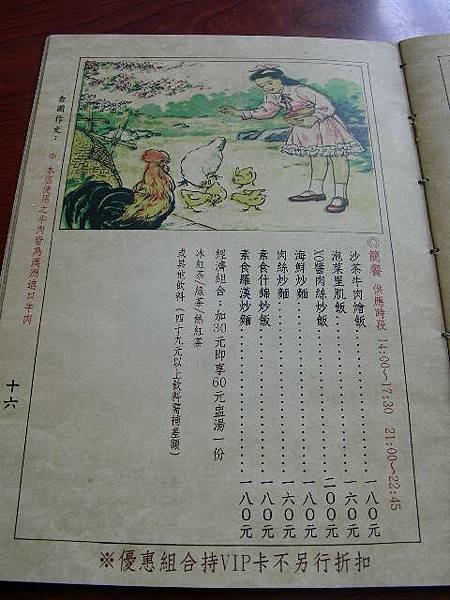 ◎簡餐 供應時段 14:00~17:30 21:00~22:45
沙茶牛肉燴飯……………一八○元
泡菜里肌飯……………一六○元
XO醬肉絲炒飯……………二○○元
海鮮炒麵……………一八○元
肉絲炒麵……………一六○元
素食什錦炒飯……………一八○元
素食羅漢炒麵……………一八○元
經濟組合：加30元即享60元盅湯一份
冰紅茶/綠茶/熱紅茶
或其他飲料(四十九元以上飲料需補差額)
看圖作文：
※本店使用之牛肉皆為澳洲進口牛肉
十六
※優惠組合持VIP卡不另行折扣